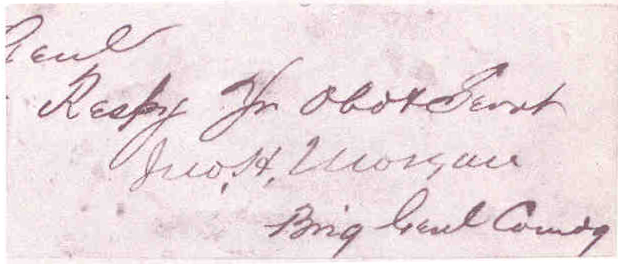 Genl
Respy Yr Obdt Servt
Jno. H. Morgan
Brig Genl Comdg